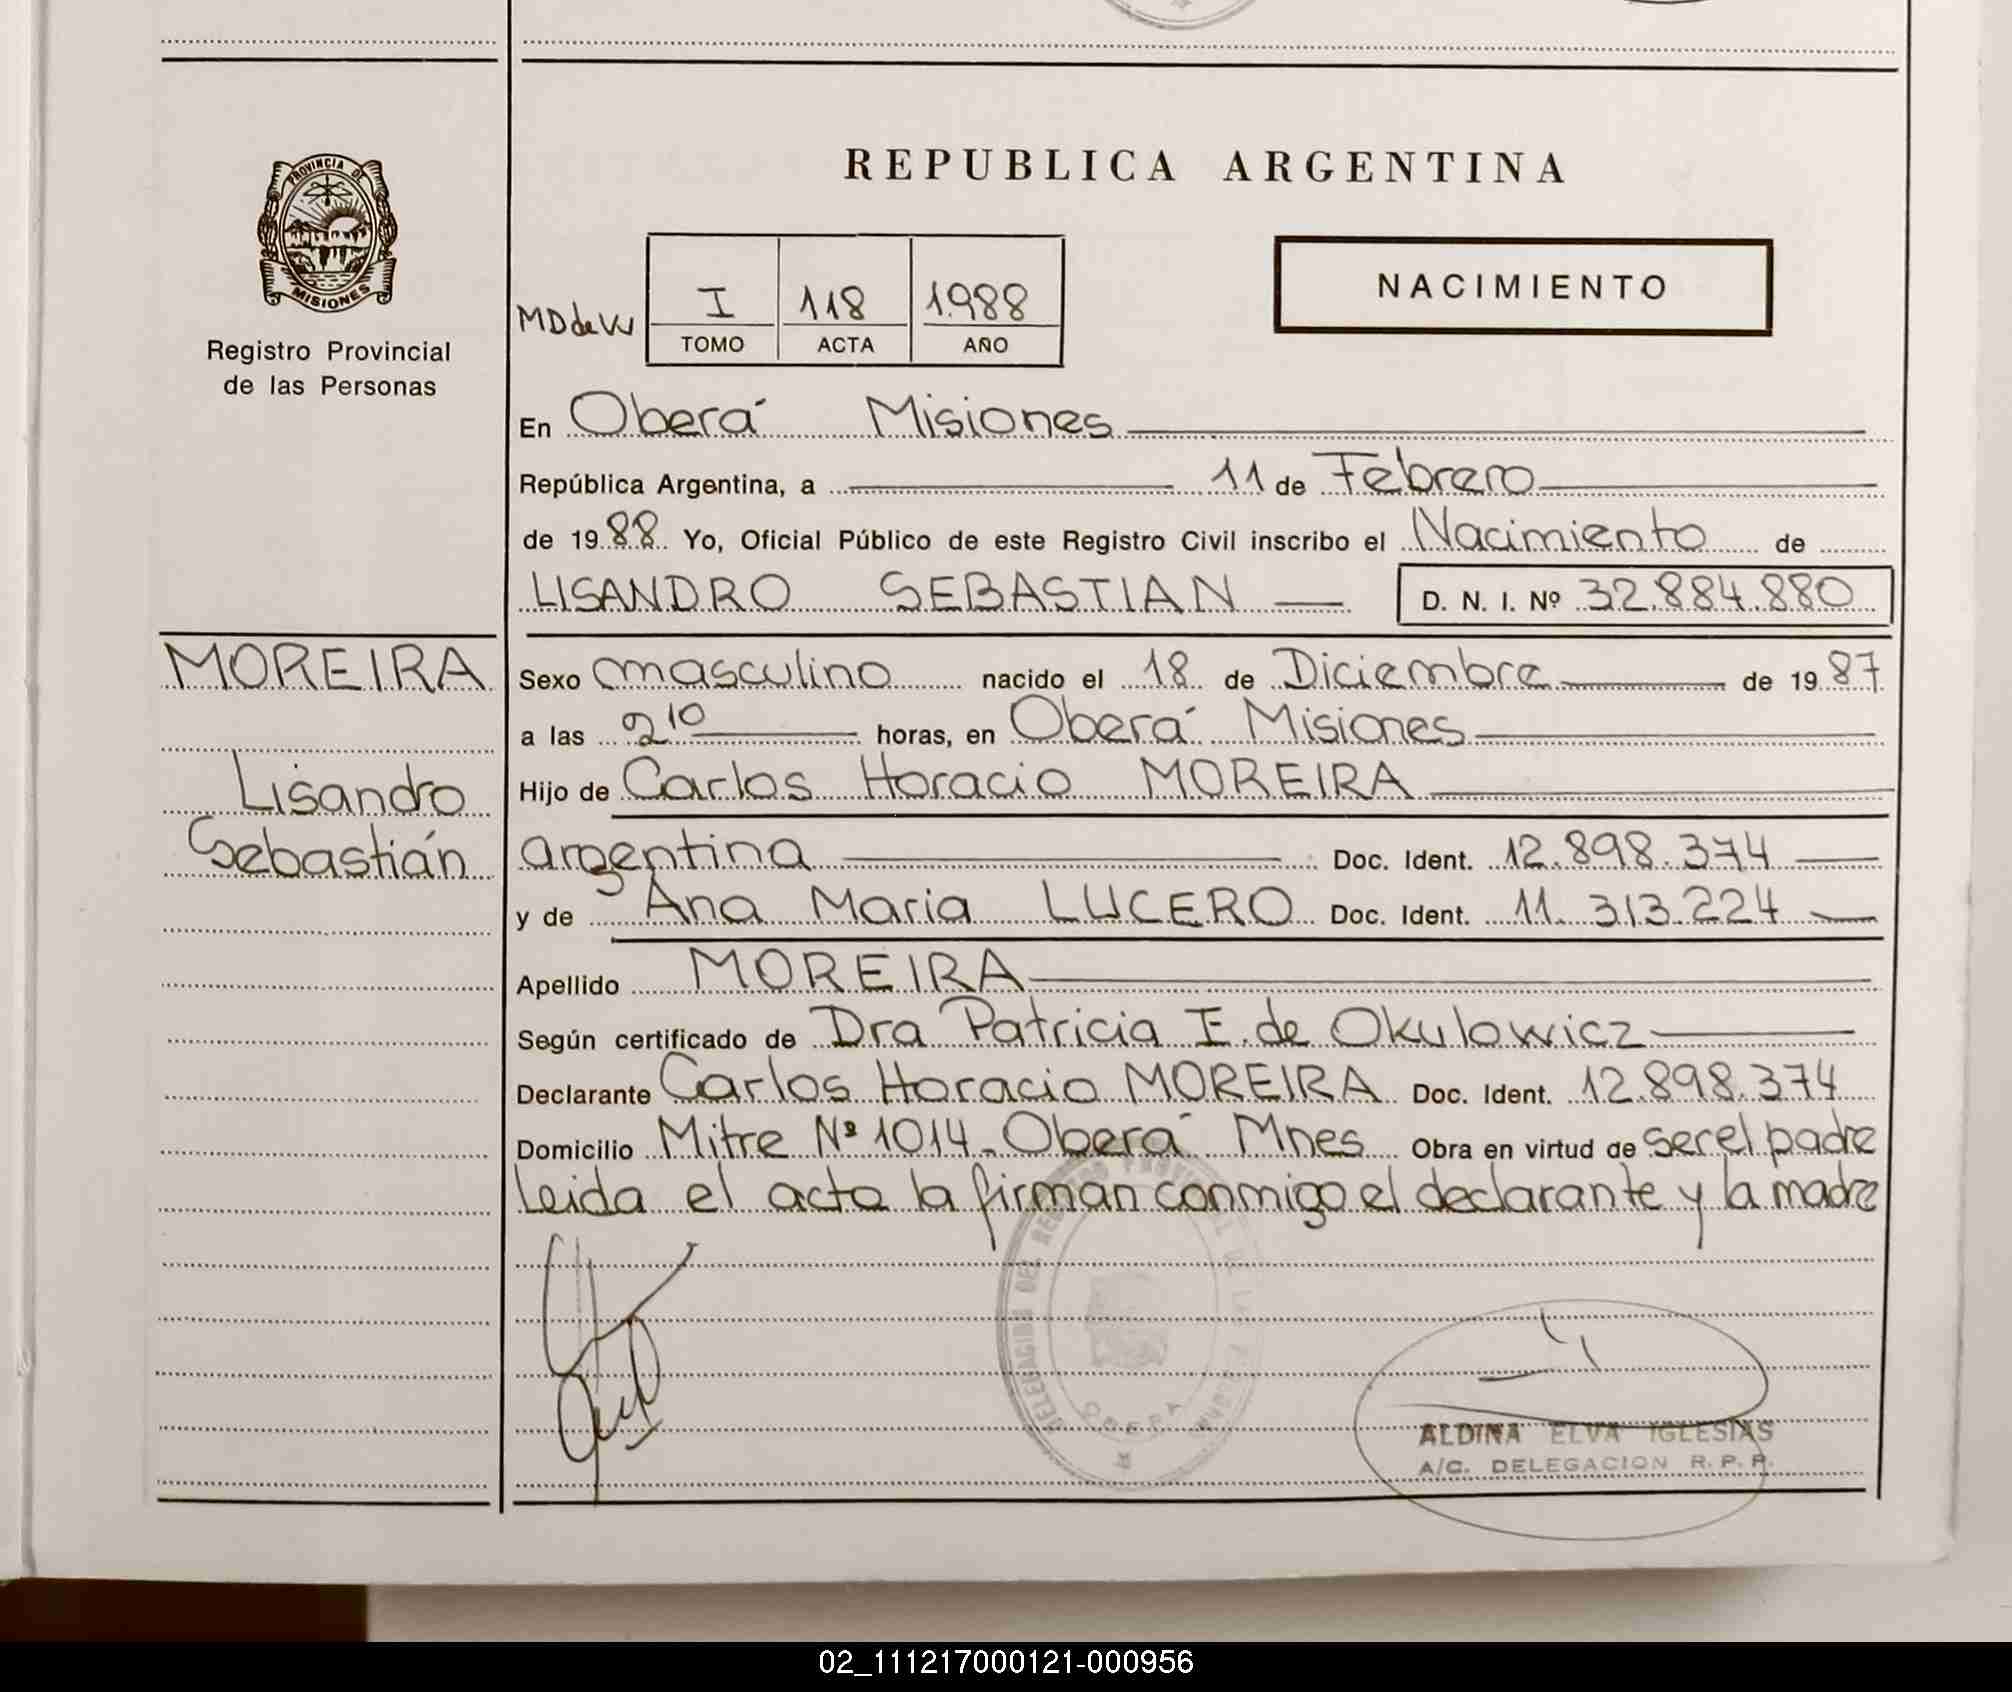 PROVINCIA DE
MISIONES
Registro Provincial
de las Personas
REPUBLICA ARGENTINA
NACIMIENTO
I 118 1.988
TOMO ACTA AÑO
En Oberá Misiones
República Argentina, a 11 de Febrero
de 1988 Yo, Oficial Público de este Registro Civil inscribo el Nacimiento de
LISANDRO SEBASTIAN D. N. I. Nº 32.884.880
MOREIRA
Lisandro
Sebastián
Sexo masculino nacido el 18 de Diciembre de 1987
a las 2 10 horas, en Oberá Misiones
Hijo de Carlos Horacio MOREIRA
argentina Doc. Ident. 12.898.374
y de Ana Maria LUCERO Doc. Ident. 11.313.224
Apellido MOREIRA
Según certificado de Dra Patricia I. de Okulowicz
Declarante Carlos Horacio MOREIRA Doc. Ident. 12.898.374
Domicilio Mitre Nº 1014. Oberá Mnes Obra en virtud de ser el padre
Leida el acta la firman conmigo el declarante y la madre
DELEGACION DEL REGISTRO PROVINCIAL DE LAS PERSONAS
OBERA
ALDINA ELVA IGLESIAS
A/C. DELEGACION R. P. P.
02_111217000121-000956